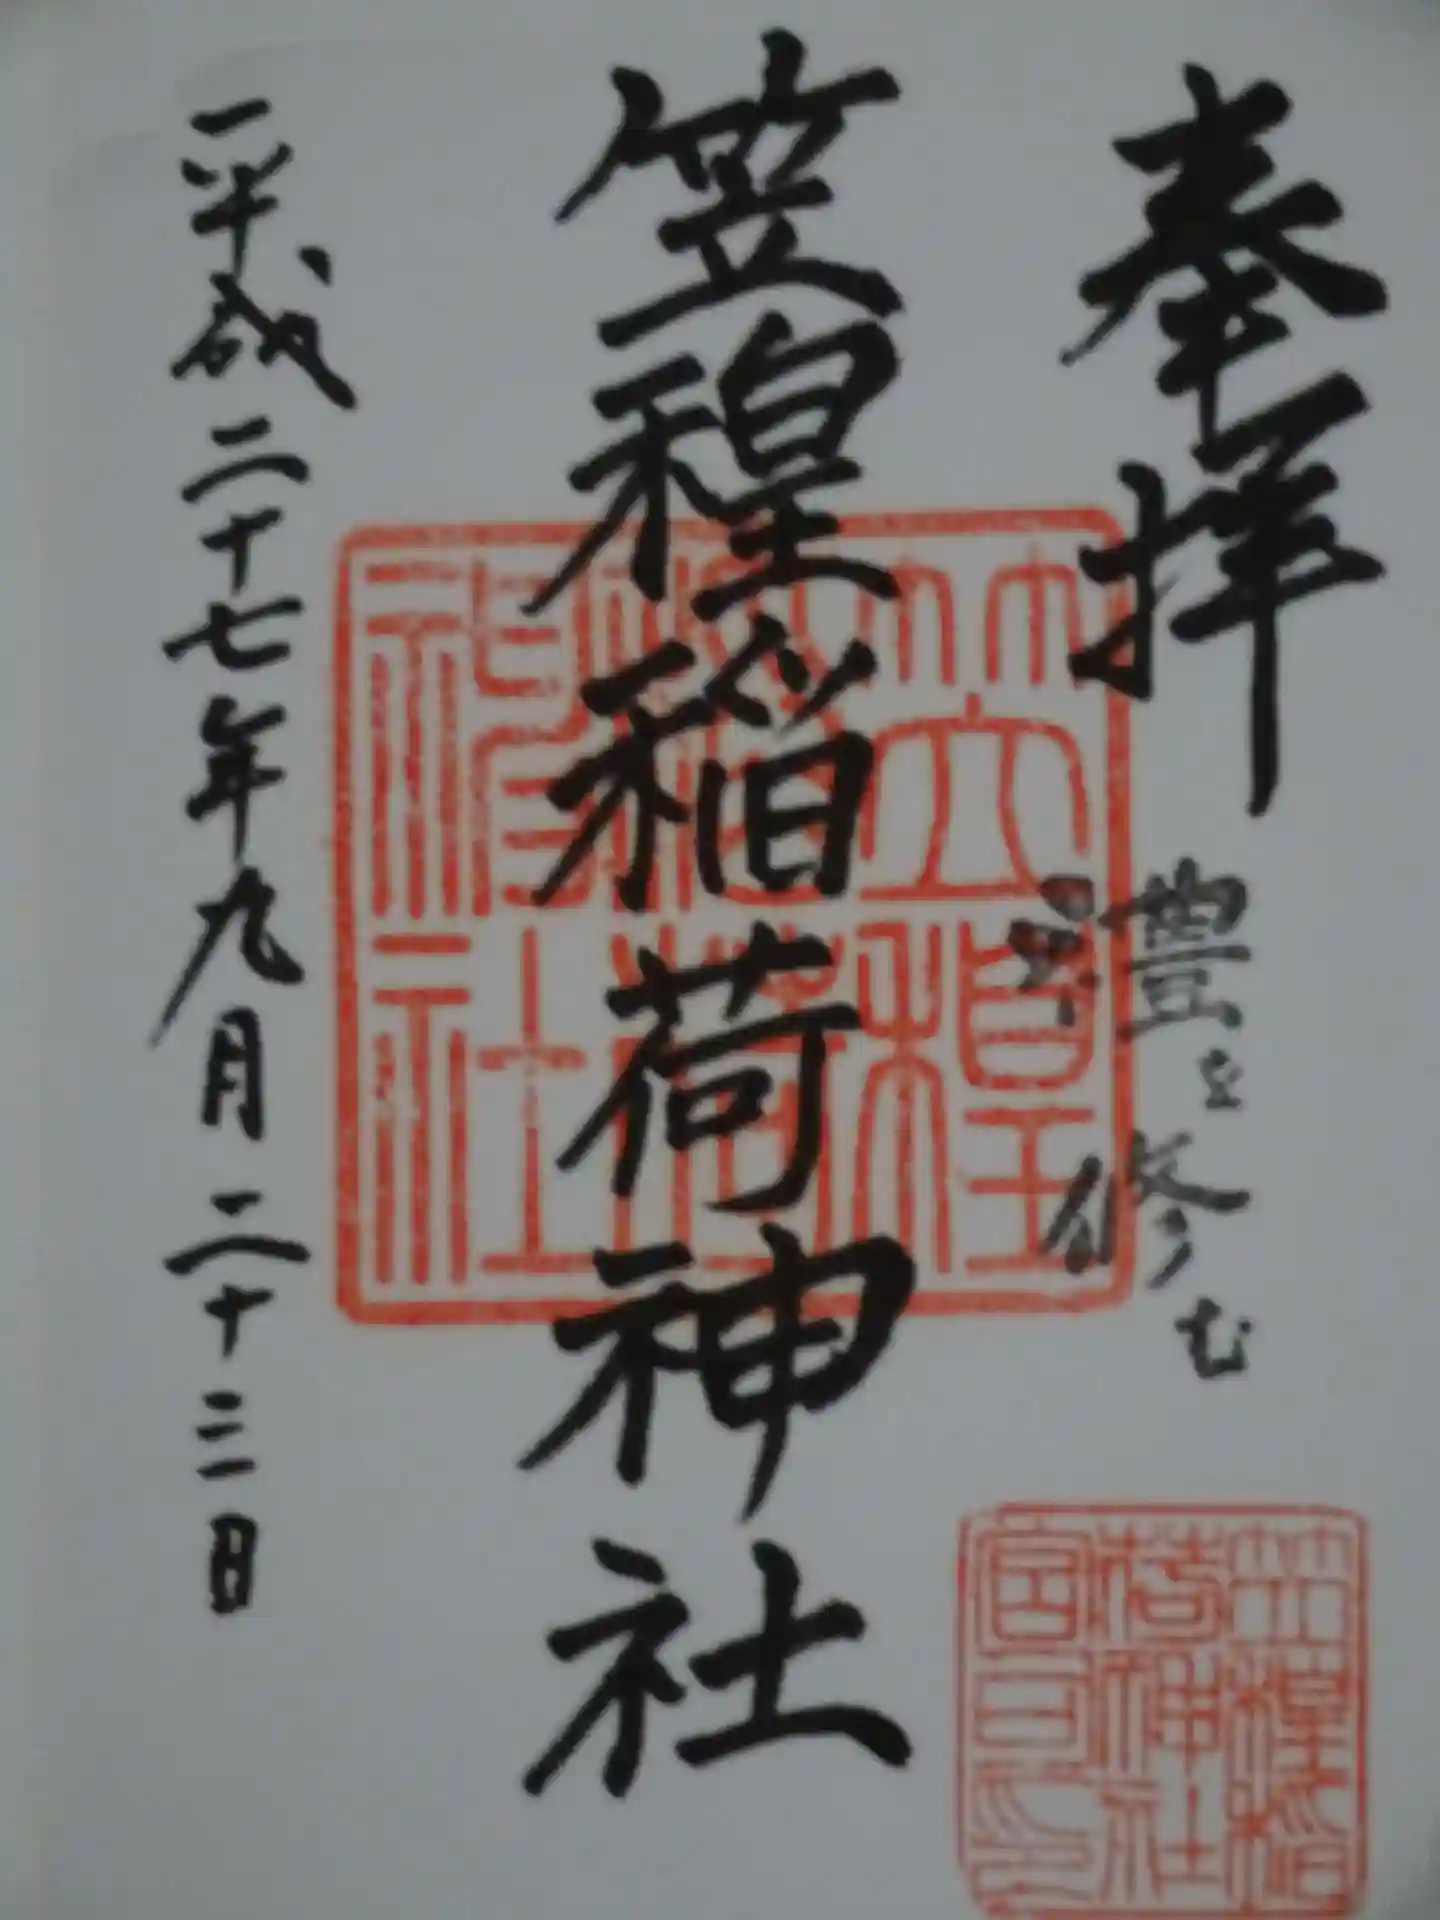 奉拝
禮を修む
笠䅣稲荷神社
平成二十七年九月二十三日
笠䅣
稲荷
神社
笠䅣稲
荷神社
宮司之印